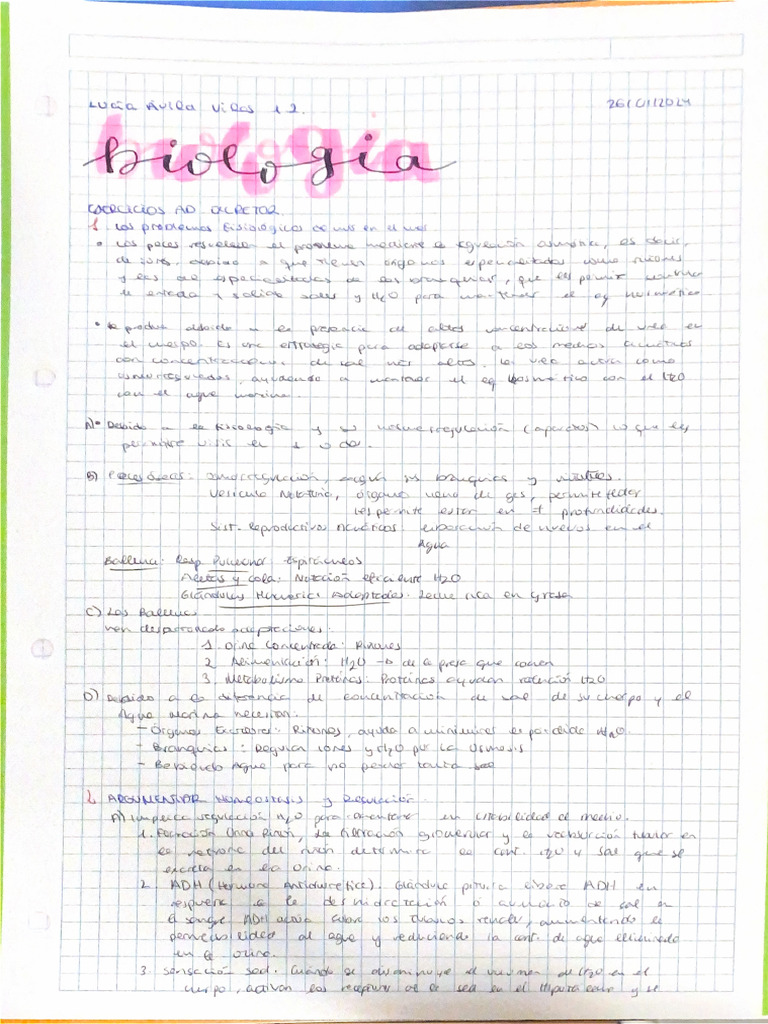 Lucía Ávila Vilas 1 2.
26/01/2024
biología
EJERCICIOS AP. EXCRETOR.
1. Los problemas fisiológicos de vivir en el mar
• Los peces resuelven el problema mediante la regulación osmótica, es decir,
de iones, debido a que tienen órganos especializados como riñones
y las especializadas de las branquias, que les permite
la entrada y salida sales y H2O para mantener el eq Homeostático
• Se produce debido a la presencia de altas concentraciones de urea en
el cuerpo. Es una estrategia para adaptarse a los medios acuáticos
con concentraciones de sal más altas. La urea actúa como
, ayudando a mantener el eq Osmótico con el H2O
con el agua marina.
A)• Debido a la fisiología y su osmorregulación (apartados) lo que les
permite vivir en
B) Peces óseos: osmorregulación, según sus branquias y
Vesícula Natatoria, órgano lleno de gas, permite
les permite estar en ≠ profundidades.
Sist. Reproductivos Acuáticos: liberación de huevos en el
Agua
Ballena: Resp Pulmonar: Espiráculos
Aletas y cola: Natación eficiente H2O
Glándulas Mamarias Adaptadas: Leche rica en grasa
C) Las Ballenas
han desarrollado adaptaciones:
1. Orina Concentrada: Riñones
2. Alimentación: H2O → de la presa que comen
3. Metabolismo Proteínas: Proteínas ayudan retención H2O
D) Debido a la diferencia de concentración de sal de su cuerpo y el
Agua marina necesitan:
- Órganos Excretores: Riñones, ayuda a minimizar la pérdida H2O.
- Branquias: Regulan iones y H2O por la Ósmosis
- Bebiendo Agua para no perder tanta
2. ARGUMENTAR Homeostasis y Regulación.
A) Implica regulación H2O para mantener en estabilidad el medio.
1. Formación Orina Riñón, La filtración glomerular y la reabsorción tubular en
la nefrona del riñón determina la cant. H2O y sal que se
excreta en la orina.
2. ADH (Hormona Antidiurética). Glándula pituitaria libera ADH en
respuesta a la deshidratación o aumento de sal en
el sangre ADH actúa sobre los túbulos renales, aumentando la
permeabilidad al agua y reduciendo la cant. de agua eliminada
en la orina.
3. Sensación sed. Cuando se disminuye el volumen de H2O en el
cuerpo, activan los receptores de la sed en el Hipotálamo y se